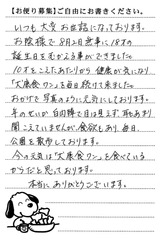 【お便り募集】ご自由にお書きください。
いつも大変お世話になっております。
お陰様で8月2日無事に18才の
誕生日をむかえる事ができました。
10才をこえたあたりから健康が気になり
「犬康食ワン」を毎日続けて来ました。
おかげで写真のように元気にしております。
年のせいか白内障で目は見えず、耳もあまり
聞こえていませんが、食欲もあり、毎日、
公園を散歩しております。
今の元気は「犬康食ワン」を食べている
からだと思っております。
本当にありがとうございます。